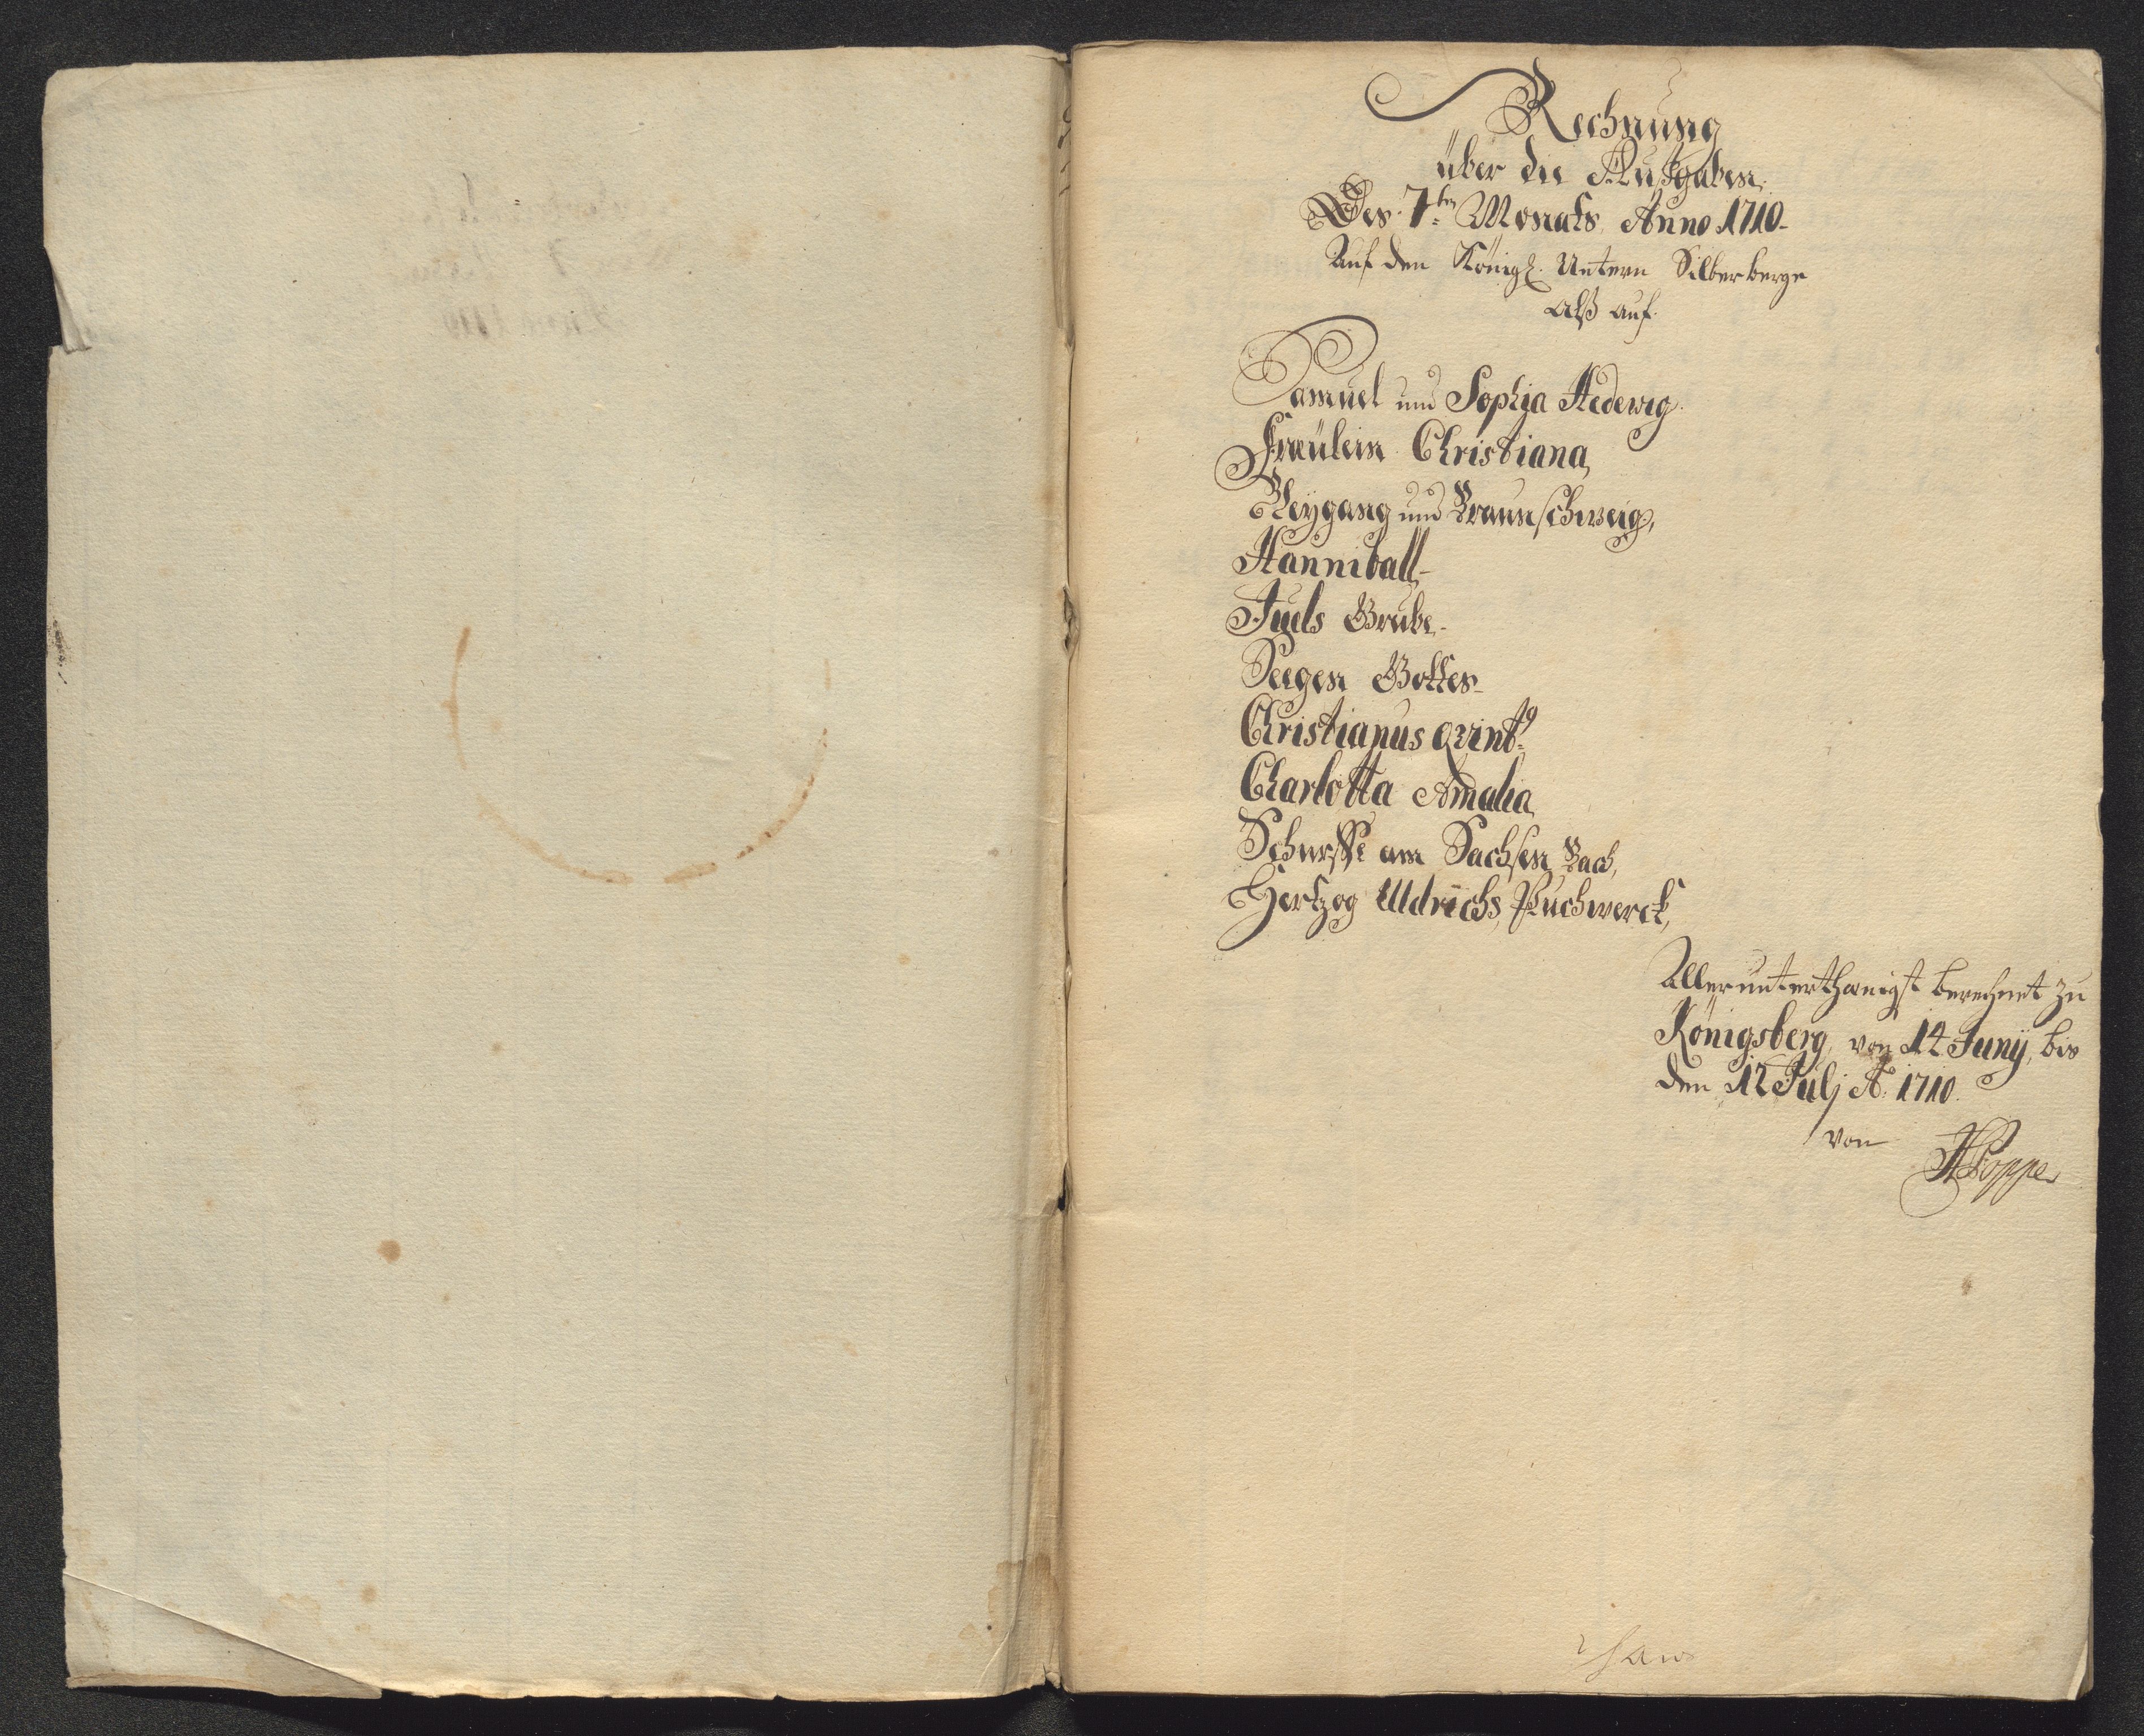 Rechnung
über die Außgaben.
Des 7ten Monats Anno 1710.
Auf den Königl. Untern Silberberge
alß auf.
Samuel und Sophia Hedewig.
Freülein Christiana,
Beÿgang und Braunschweig,
Hanniball,
Juels Grube.
Seegen Gottes.
Christianus qvint9
Charlotta Amalia,
Schurffe am Sachsen Bach,
Hertzog Uldrichs Puchwerck,
Allerunterthänigst berechnet zu
Königsberg, von 14 Junÿ, bis
den 12 Julj Ao. 1710.
von HPoppe